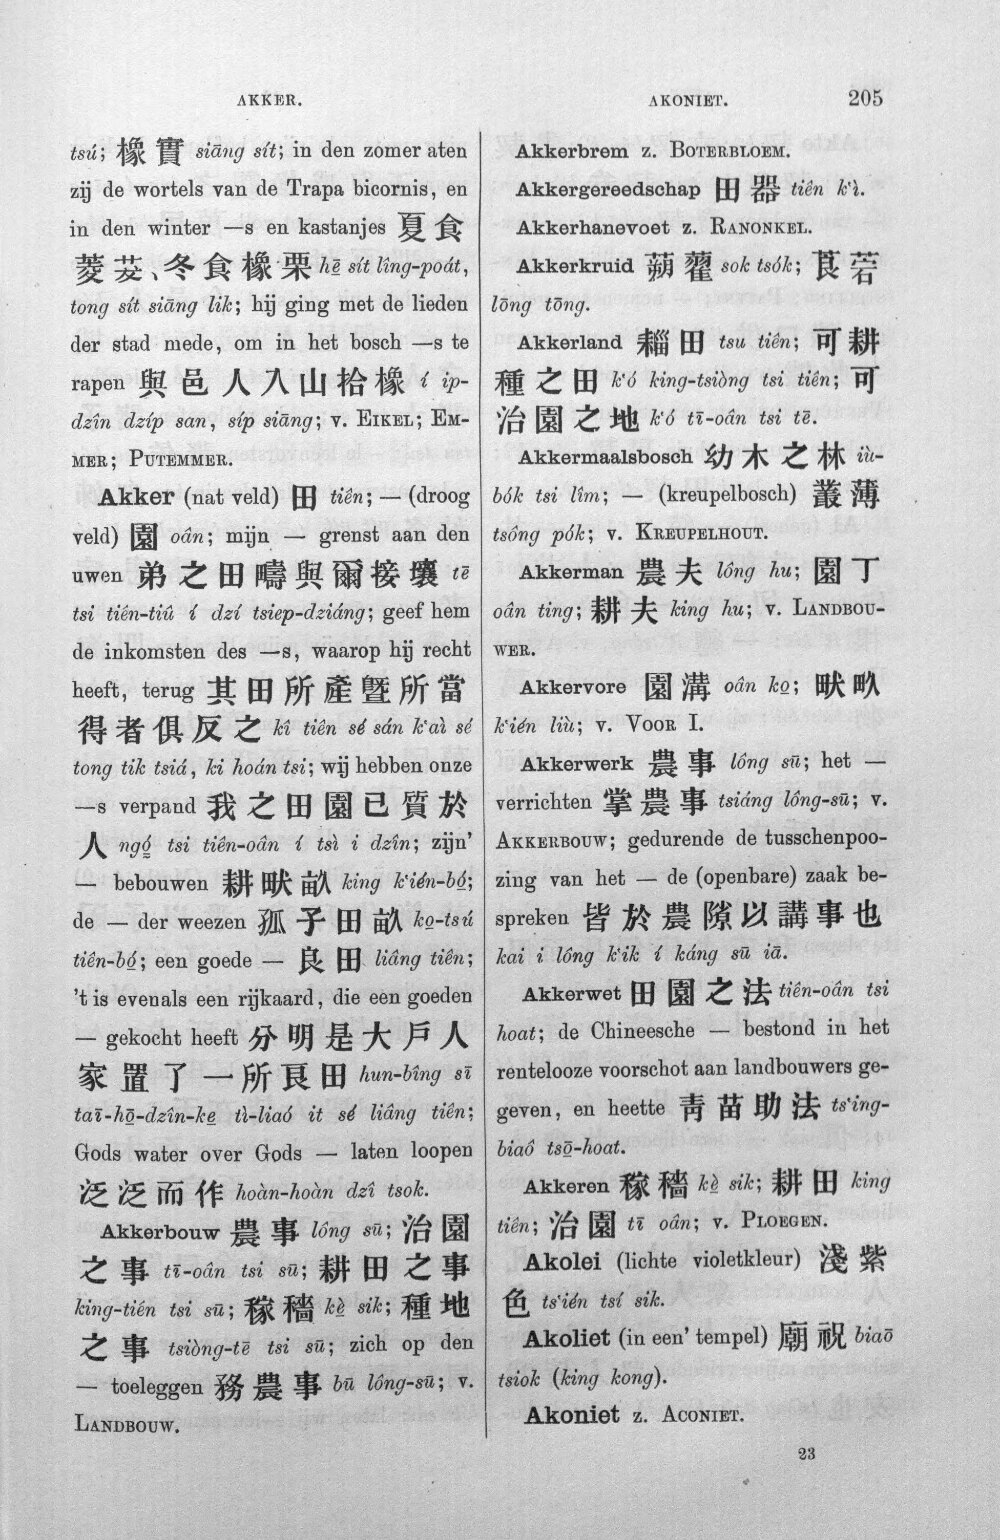 AKKER.
AKONIET.
205
tsú; 橡實 siāng sít; in den zomer aten
zij de wortels van de Trapa bicornis, en
in den winter —s en kastanjes 夏食
菱芡、冬食橡栗 hē sít lîng-poát,
tong sít siāng lik; hij ging met de lieden
der stad mede, om in het bosch —s te
rapen 與邑人入山拾橡 í ip-
dzîn dzíp san, síp siāng; v. EIKEL; EM-
MER; PUTEMMER.
Akker (nat veld) 田 tiên; — (droog
veld) 園 oân; mijn — grenst aan den
uwen 弟之田疇與爾接壤 tē
tsi tiên-tiû í dzí tsiep-dziáng; geef hem
de inkomsten des —s, waarop hij recht
heeft, terug 其田所產曁所當
得者俱反之 kî tiên sé sán k‘aì sé
tong tik tsiá, ki hoán tsi; wij hebben onze
—s verpand 我之田園已質於
人 ngó̤ tsi tiên-oân í tsì i dzîn; zijn’
— bebouwen 耕畎畝 king k‘ién-bó̤;
de — der weezen 孤子田畝 ko̤-tsú
tiên-bó̤; een goede — 良田 liâng tiên;
’t is evenals een rijkaard, die een goeden
— gekocht heeft 分明是大戶人
家置了一所良田 hun-bîng sī
taī-hō̤-dzîn-ke̤ tì-liaó it sé liâng tiên;
Gods water over Gods — laten loopen
泛泛而作 hoàn-hoàn dzî tsok.
Akkerbouw 農事 lông sū; 治園
之事 tī-oân tsi sū; 耕田之事
king-tiên tsi sū; 稼穡 kè̤ sik; 種地
之事 tsiòng-tē tsi sū; zich op den
— toeleggen 務農事 bū lông-sū; v.
LANDBOUW.
Akkerbrem z. BOTERBLOEM.
Akkergereedschap 田器 tiên k‘ì.
Akkerhanevoet z. RANONKEL.
Akkerkruid 蒴藋 sok tsók; 莨菪
lōng tōng.
Akkerland 輜田 tsu tiên; 可耕
種之田 k‘ó king-tsiòng tsi tiên; 可
治園之地 k‘ó tī-oân tsi tē.
Akkermaalsbosch 幼木之林 iù-
bók tsi lîm; — (kreupelbosch) 叢薄
tsông pók; v. KREUPELHOUT.
Akkerman 農夫 lông hu; 園丁
oân ting; 耕夫 king hu; v. LANDBOU-
WER.
Akkervore 園溝 oân ko̤; 畎
k‘ién liù; v. VOOR I.
Akkerwerk 農事 lông sū; het —
verrichten 掌農事 tsiáng lông-sū; v.
AKKERBOUW; gedurende de tusschenpoo-
zing van het — de (openbare) zaak be-
spreken 皆於農隙以講事也
kai i lông k‘ik í káng sū iā.
Akkerwet 田園之法 tiên-oân tsi
hoat; de Chineesche — bestond in het
rentelooze voorschot aan landbouwers ge-
geven, en heette 靑苗助法 ts‘ing-
biaô tsō̤-hoat.
Akkeren 稼穡 kè̤ sik; 耕田 king
tiên; 治園 tī oân; v. PLOEGEN.
Akolei (lichte violetkleur) 淺紫
色 ts‘ién tsí sik.
Akoliet (in een’ tempel) 廟祝 biaō
tsiok (king kong).
Akoniet z. ACONIET.
23